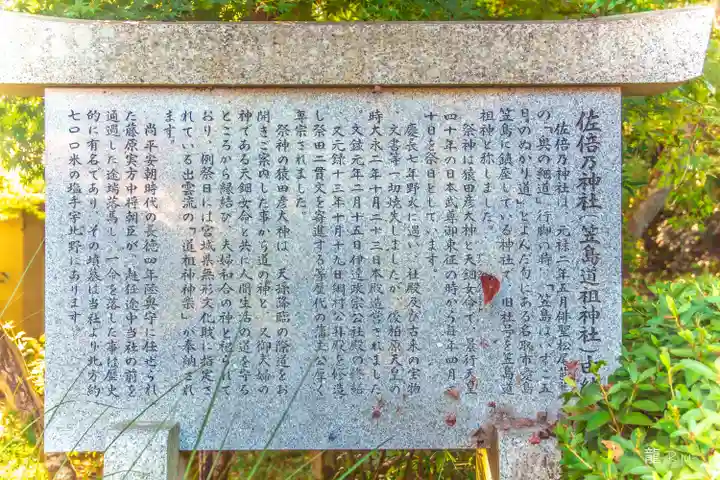 佐倍乃神社(笠島道祖神社)由緒
佐倍乃神社は、元禄二年五月俳聖松尾芭蕉
の「奥の細道」行脚の時、「笠島は、いずこ五
月のぬかり道」とよんだ句にある名取市愛島
笠島に鎮座している神社で、旧社号を笠島道
祖神と称しました。
祭神は猿田彦大神と天鈿女命で、景行天皇
四十年の日本武尊御東征の時から毎年四月二
十日を祭日としています。
慶長七年野火に遇い、社殿及び古来の宝物
、文書等一切焼失しましたが、後柏原天皇の
時大永二年十月二十三日本殿造営されました
。文政元年二月十五日伊達政宗公社殿の修
又元録十三年十月十九日綱村公拝殿を修造
し祭田二貫文を寄進する等歴代の藩主公尊
尊宗されました。
祭神の猿田彦大神は、天孫降臨の際道をお
開きご案内した事から道の神と、又御夫婦の
神である天鈿女命と共に人間生活の道を守る
ところから縁結び、夫婦和合の神と祀られて
おり、例祭日には宮城県無形文化財に指定さ
れている出雲流の「道祖神神楽」が奉納され
ます。
尚平安朝時代の長徳四年陸奥守に任ぜられ
た藤原実方中将朝臣が、赴任途中当社の前を
通過した途端落馬し、一命を落した事は歴史
的に有名であり、その墳墓は当社より北方約
七〇〇米の塩手字北野にあります。
龍